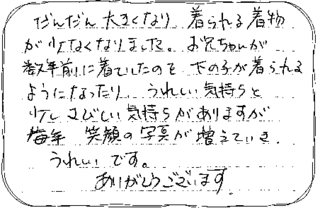 だんだん 大きくなり 着られる着物
が少なくなりました。お兄ちゃんが
数年前に着ていたのを 下の子が着られる
ようになったり うれしい気持ちと
少しさびしい気持ちがありますが
毎年 笑顔の写真が増えていき
うれしいです。
ありがとうございます